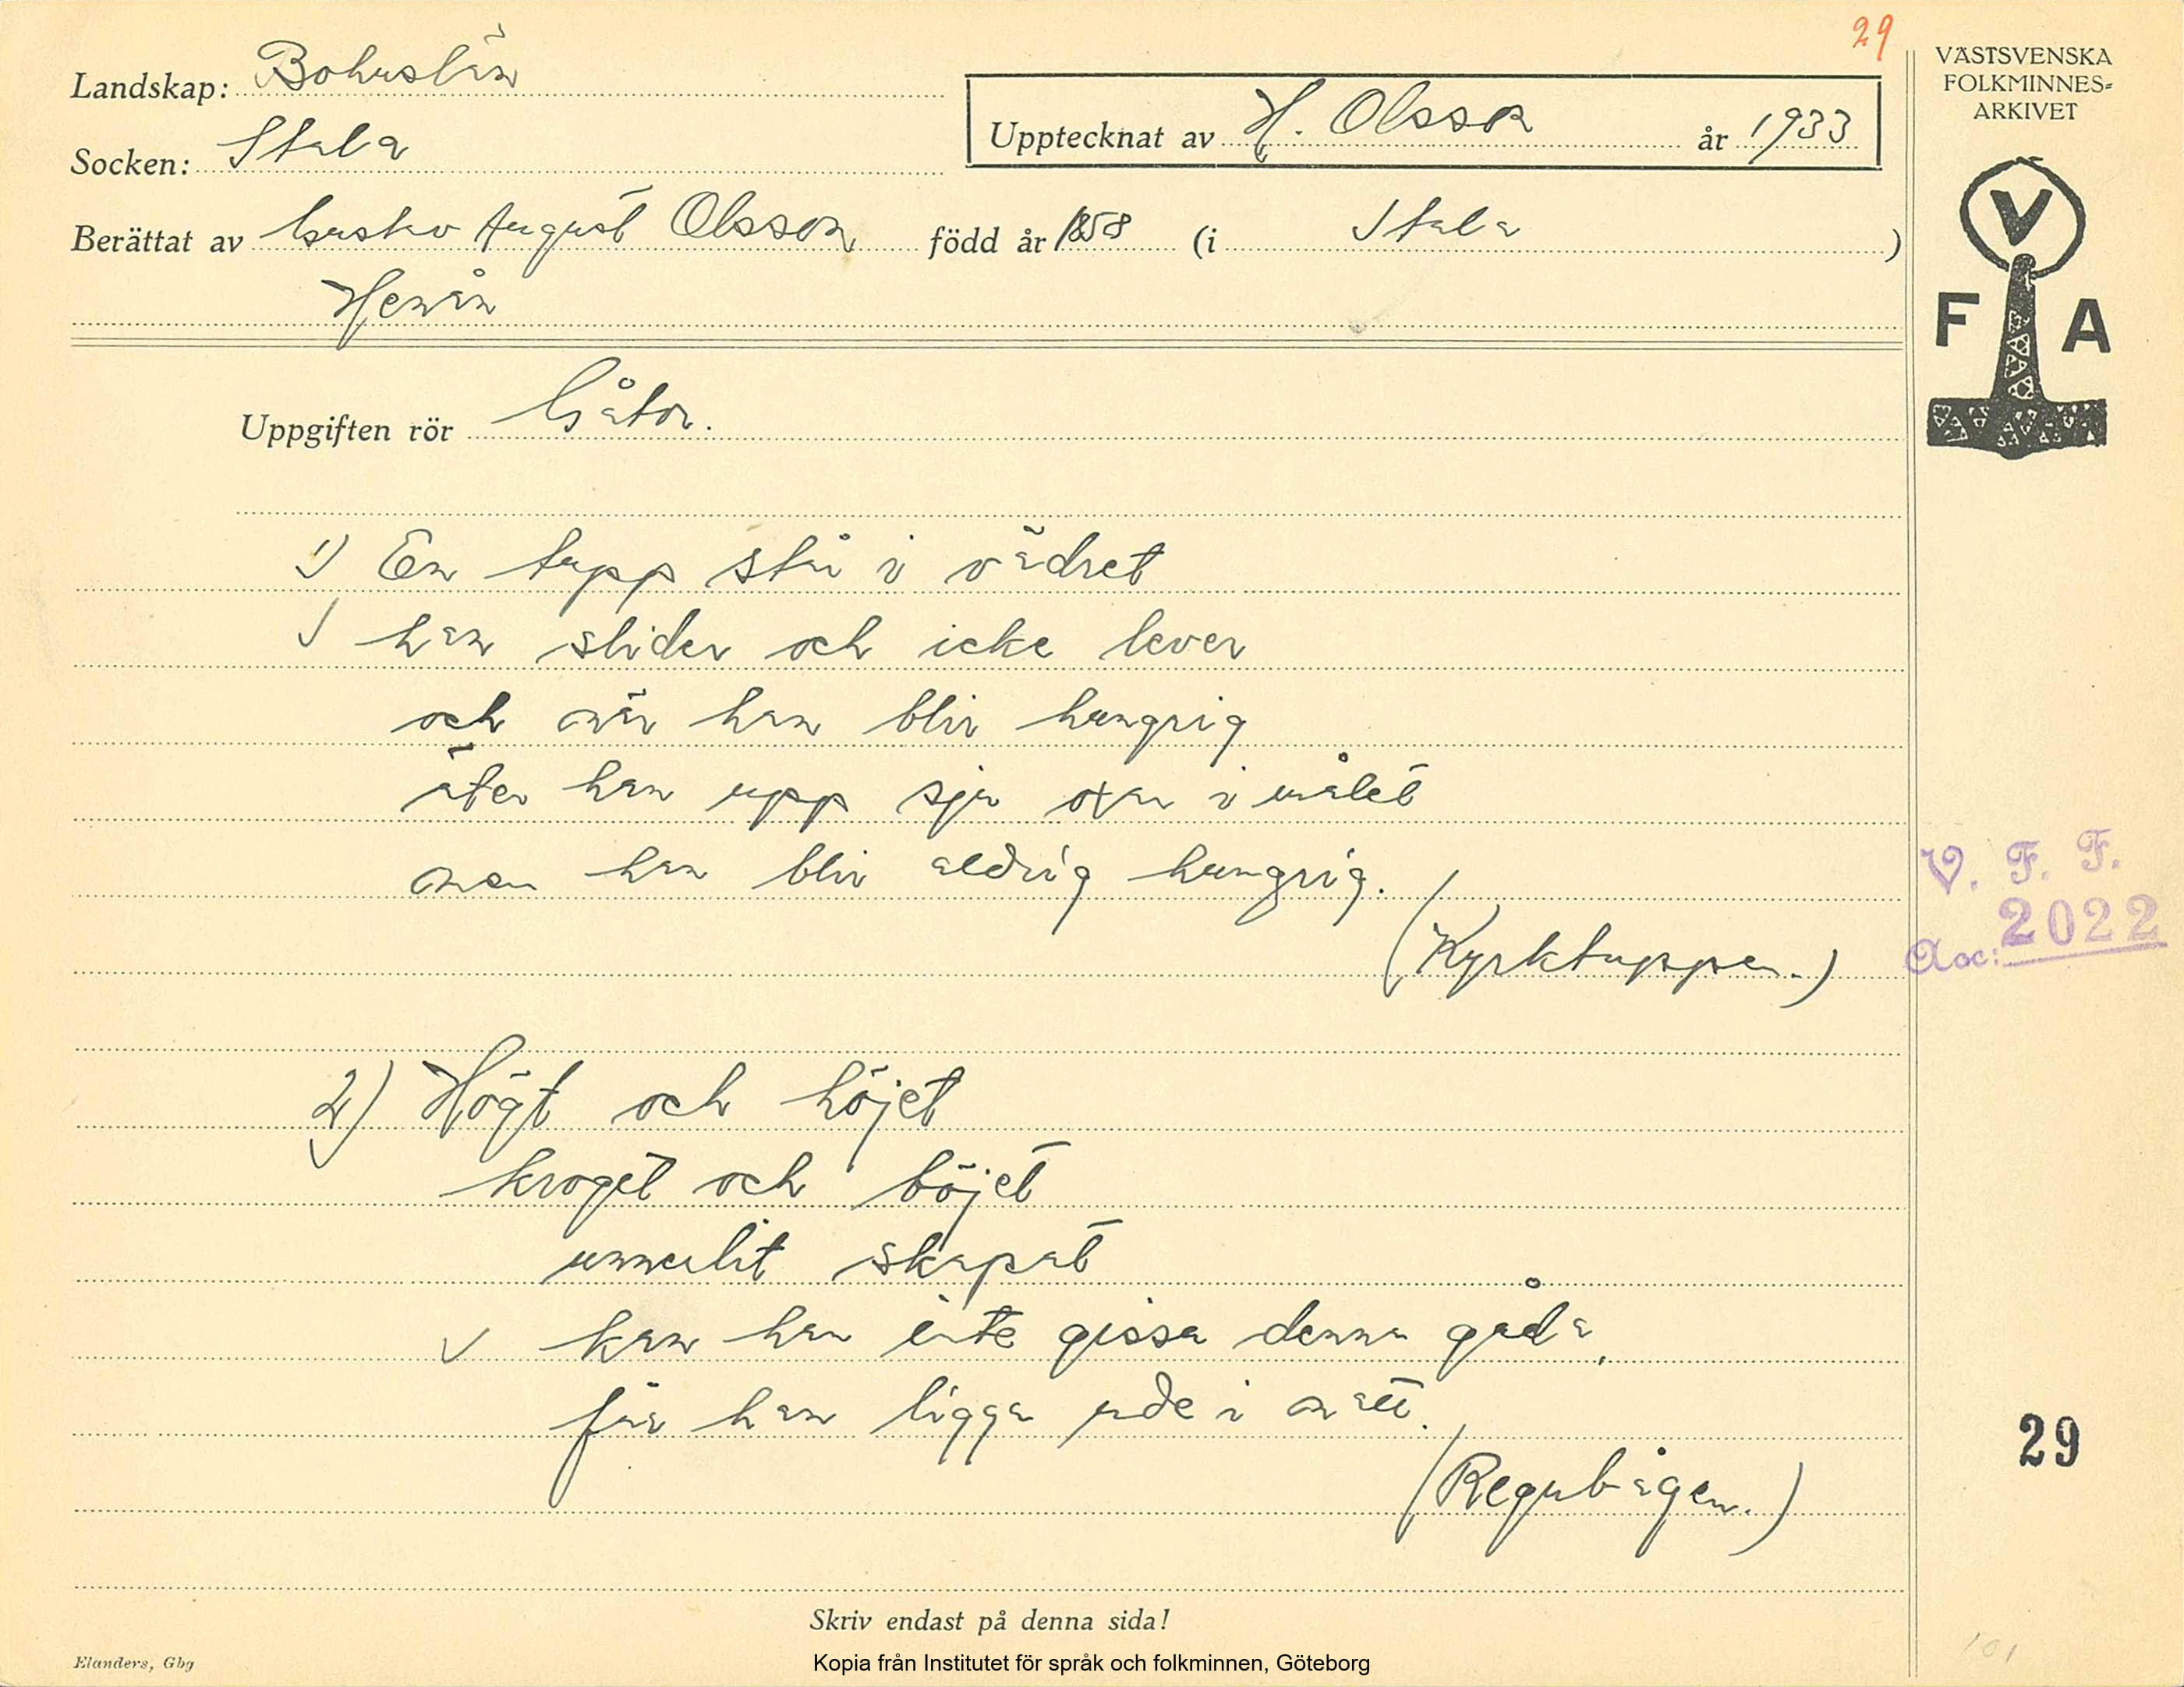 29
Landskap: Bohuslän
Socken: Stala
Upptecknat av H. Olsson år 1933
Berättat av Gustav August Olsson född år 1858 (i Stala)
Henån
Uppgiften rör Gåtor.
1) En tupp står i vädret
han slider och icke lever
och när han blir hungrig
äter han upp sju oxar i målet
men han blir aldrig hungrig.
(Kyrktuppen.)
2) Högt och höjet
kroget och böjet
skapat
kan han inte gissa denna gåda,
får han ligga ude i natt.
(Regnbågen.)
Skriv endast på denna sida!
Elanders, Gbg
Kopia från Institutet för språk och folkminnen, Göteborg
VÄSTSVENSKA
FOLKMINNES-
ARKIVET
V
F A
V. F. F.
Acc: 2022
29
101